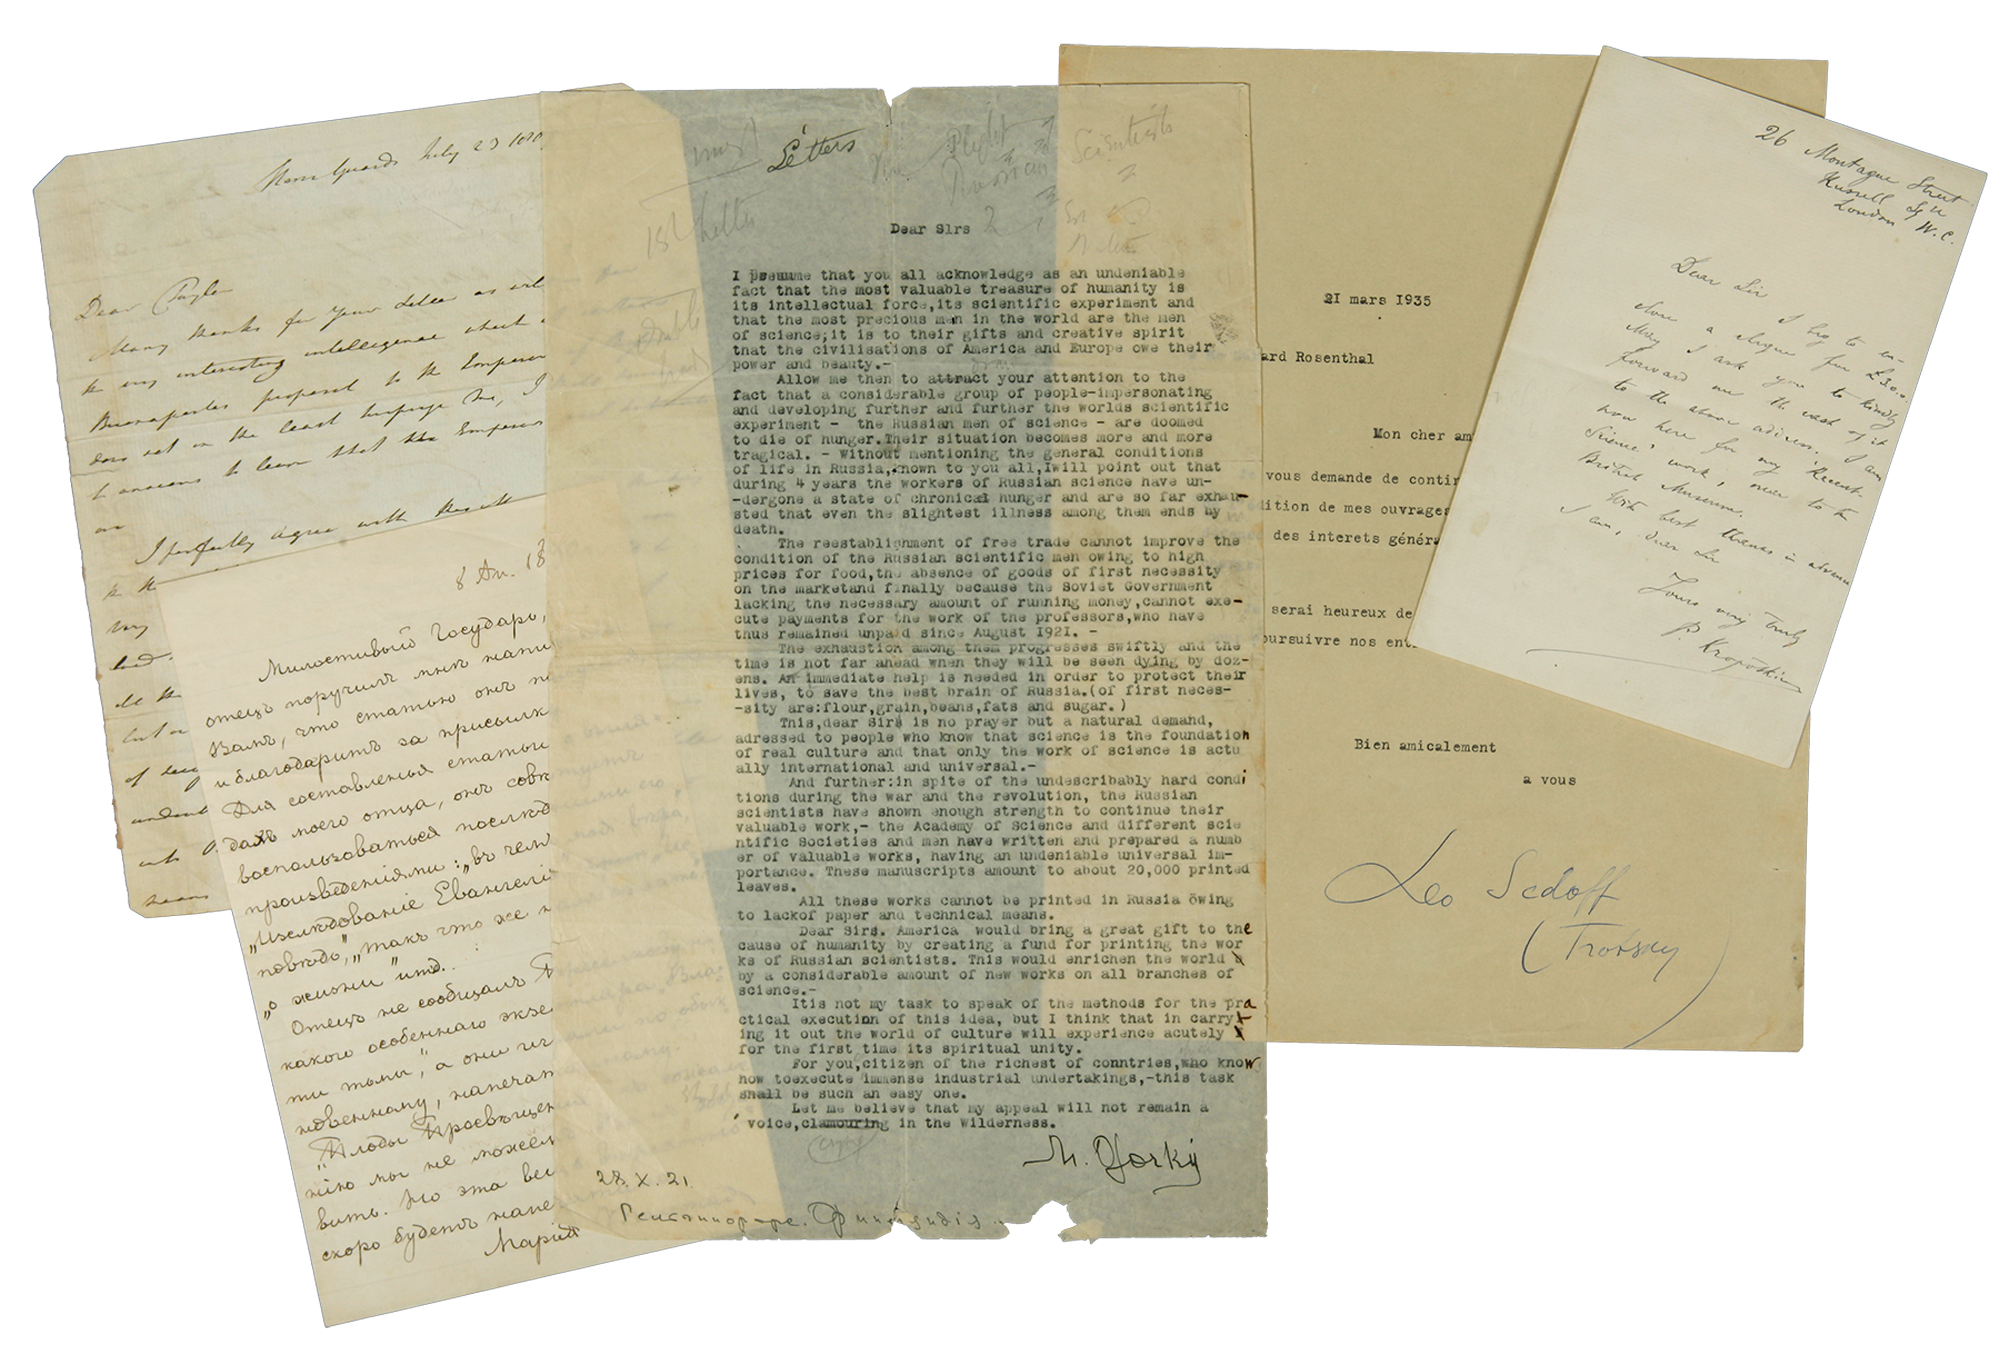 Horse Guards July 23
Dear
Many thanks for your letter as
the very interesting intelligence about
Buonapartes proposal to the Emperor
does not in the least surprise me, I
to learn that the Emperor
I perfectly agree with
8 Ап. 18
Милостивый Государь,
отецъ поручилъ мнѣ напи
Вамъ, что статью онъ по
и благодаритъ за присылк
Для составленья статьи
дахъ моего отца, онъ совѣ
воспользоваться послѣд
произведеніями: „въ чем
„Изслѣдованіе Евангелі
повѣдь", „такъ что же н
„о жизни" итд.
Отецъ не сообщалъ
какого особеннаго экзе
ти тьмы", а они
новенному, напечат
„Плоды Просвѣщен
нію мы не можем
вить. Но эта вещ
скоро будетъ напе
Марія
Letters
The Plight
Russian
Scientists
1st Letter
Dear Sirs
I presume that you all acknowledge as an undeniable
fact that the most valuable treasure of humanity is
its intellectual force,its scientific experiment and
that the most precious men in the world are the men
of science;it is to their gifts and creative spirit
that the civilisations of America and Europe owe their
power and beauty.-
Allow me then to attract your attention to the
fact that a considerable group of people-impersonating
and developing further and further the worlds scientific
experiment - the Russian men of science - are doomed
to die of hunger.Their situation becomes more and more
tragical. - Without mentioning the general conditions
of life in Russia,known to you all,Iwill point out that
during 4 years the workers of Russian science have un-
-dergone a state of chronical hunger and are so far exhau-
sted that even the slightest illness among them ends by
death.
The reestablishment of free trade cannot improve the
condition of the Russian scientific men owing to high
prices for food,the absence of goods of first necessity
on the marketand finally because the Soviet Government
lacking the necessary amount of running money,cannot exe-
cute payments for the work of the professors,who have
thus remained unpaid since August 1921. -
The exhaustion among them progresses swiftly and the
time is not far ahead when they will be seen dying by doz-
ens. An immediate help is needed in order to protect their
lives, to save the best brain of Russia.(of first neces-
-sity are:flour,grain,beans,fats and sugar.)
This,dear Sirs is no prayer but a natural demand,
adressed to people who know that science is the foundation
of real culture and that only the work of science is actu
ally international and universal.-
And further:in spite of the undescribably hard condi
tions during the war and the revolution, the Russian
scientists have shown enough strength to continue their
valuable work,- the Academy of Science and different scie
ntific Societies and men have written and prepared a numb
er of valuable works, having an undeniable universal im-
portance. These manuscripts amount to about 20,000 printed
leaves.
All these works cannot be printed in Russia öwing
to lackof paper and technical means.
Dear Sirs. America would bring a great gift to the
cause of humanity by creating a fund for printing the wor
ks of Russian scientists. This would enrichen the world
by a considerable amount of new works on all branches of
science.-
Itis not my task to speak of the methods for the pra
ctical execution of this idea, but I think that in carry
ing it out the world of culture will experience acutely
for the first time its spiritual unity.
For you,citizen of the richest of conntries,who know
how toexecute immense industrial undertakings,-this task
shall be such an easy one.
Let me believe that my appeal will not remain a
voice,clamouring in the wilderness.
M. Gorky
28.X.21
Гельсингфорс. Финляндія.
21 mars 1935
ard Rosenthal
Mon cher am
vous demande de contin
dition de mes ouvrages
des interets généra
serai heureux de
oursuivre nos ent
Bien amicalement
a vous
Leo Sedoff
(Trotsky)
26 Montague Street
Russell Sq
London W.C.
Dear Sir
I beg to en-
close a cheque for £30..
May I ask you to kindly
forward me the cash of it
to the above address. I am
now here for my 'Recent
Science' work, near to the
British Museum.
With best thanks in advance
I am, dear Sir
Yours very truly
P. Kropotkin